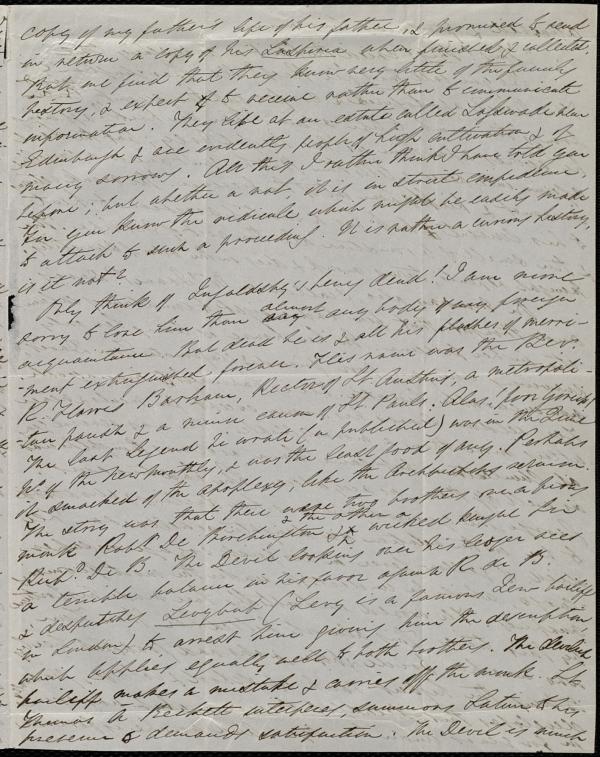 copy of my father's life of his father, & promised to send
in return a copy of his when finished & collated.
But we find that they know very little of the family
history, & expect to receive rather than to communicate
information. They live at an estate called Lasswade near
Edinburgh & are evidently people of high cultivation & of
many sorrows. All this I rather think I have told you
before; but whether or not it is in strict confidence,
for you know the ridicule which might be easily made
to attach to such a proceeding. It is rather a curious history,
is it not?
Only think of Ingoldsby's being dead! I am more
sorry to lose him than almost any body of my foreign
acquaintance. But dead he is & all his flashes of merri-
-ment extinguished forever. His name was the Rev.
R. Harris Barham, Rector of St Austins, a metropoli-
tan parish & a minor canon of St Pauls. Alas! poor Yorick!
The last Legend he wrote (or published) was in the June
No. of the New Monthly, & was the least good of any. Perhaps
it smacked of the apoplexy, like the Archbishop's sermon.
The story was that there were two brothers one a pious
monk Robt. De Birchington & the other a wicked knight Sir
Richd. De B. The Devil looking over his ledger sees
a terrible balance in his favor against R. de B.
& despatches Levybub (Levy is a famous Jew bailiff
in London) to arrest him giving him the description
which applies equally well to both brothers. The devilish
bailiff makes a mistake & carries off the monk. St.
Thomas à Beckett interferes, summons Satan to his
presence & demands satisfaction. The Devil is much